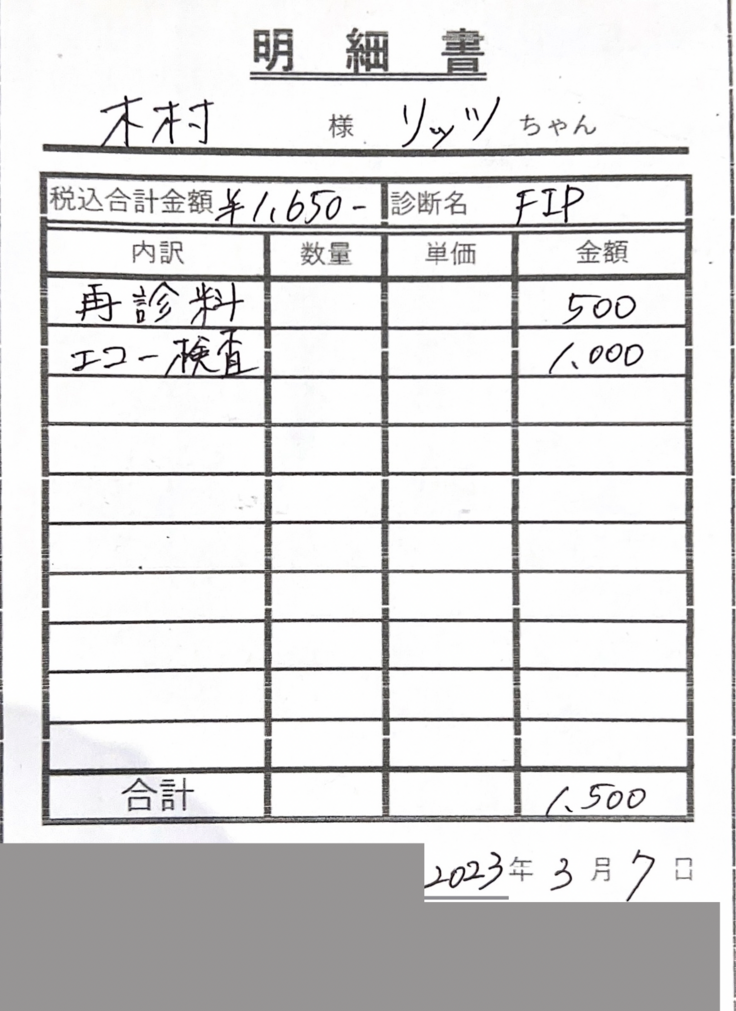 明細書
木村 様 リッツ ちゃん
税込合計金額 ¥1,650- 診断名 FIP
内訳 数量 単価 金額
再診料 500
エコー検査 1.000
合計 1.500
2023年 3月 7日